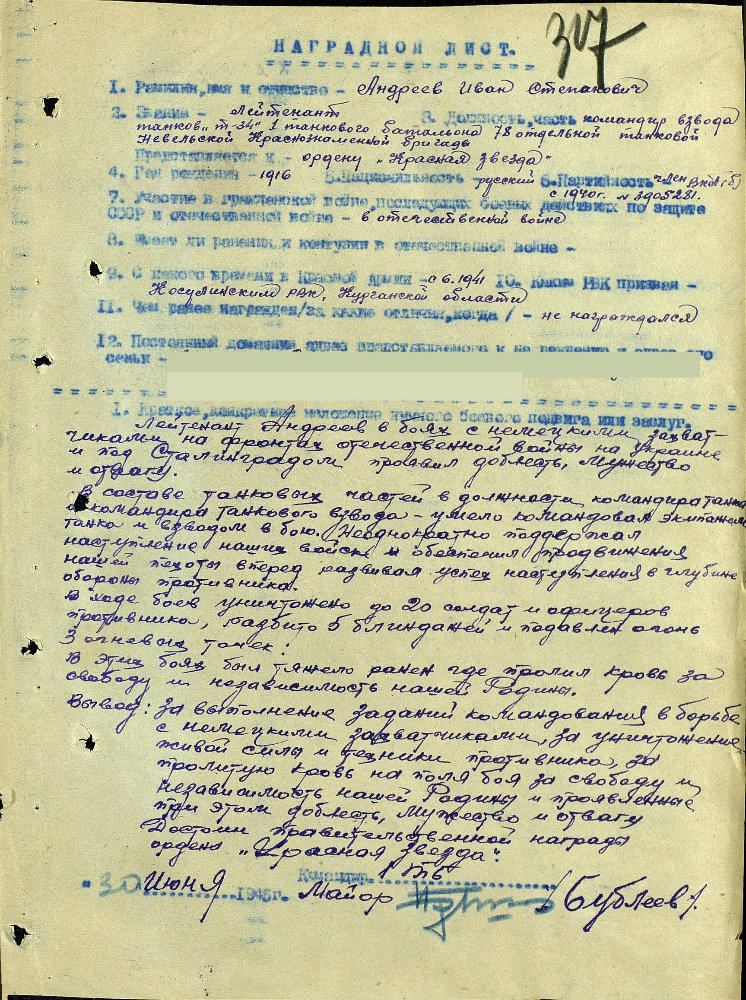 307
НАГРАДНОЙ ЛИСТ.
1. Фамилия, имя и отчество - Андреев Иван Степанович
2. Звание - Лейтенант 3. Должность, часть командир взвода
танков „Т-34" 1 танкового батальона 78 отдельной танковой
Невельской Краснознаменной бригады
Представляется к - ордену „Красная звезда"
4. Год рождения - 1916 5. Национальность - русский 6. Партийность - член ВКП(б)
с 1940г. № 3905281.
7. Участие в гражданской войне, последующих боевых действиях по защите
СССР и отечественной войне - в отечественной войне
8. Имеет ли ранения и контузии в отечественной войне -
9. С какого времени в Красной Армии - с 6.1941 10. Каким РВК призван -
Косулинским РВК, Курганской области
11. Чем ранее награжден /за какие отличия, когда/ - не награждался
12. Постоянный домашний адрес представляемого к награждению и адрес его
семьи -
1. Краткое, конкретное изложение личного боевого подвига или заслуг.
Лейтенант Андреев в боях с немецкими захват-
чиками на фронтах отечественной войны на Украине
и под Сталинградом проявил доблесть, мужество
и отвагу.
В составе танковых частей в должности командира танка
и командира танкового взвода - умело командовал экипажем
танка и взводом в бою. Неоднократно поддержал
наступление наших войск и обеспечил продвижения
нашей пехоты вперед развивая успех наступления в глубине
обороны противника.
В ходе боев уничтожено до 20 солдат и офицеров
противника, разбито 5 блиндажей и подавлен огонь
3 огневых точек:
В этих боях был тяжело ранен где пролил кровь за
свободу и независимость нашей Родины.
Вывод: За выполнение заданий командования в борьбе
с немецкими захватчиками, за уничтожение
живой силы и техники противника, за
пролитую кровь на поля боя за свободу и
независимость нашей Родины и проявленные
при этом доблесть, мужество и отвагу
Достоин правительственной награды
ордена „Красная звезда".
Командир 1 ТБ
„30" Июня 1943г. Майор /Бублеев/.